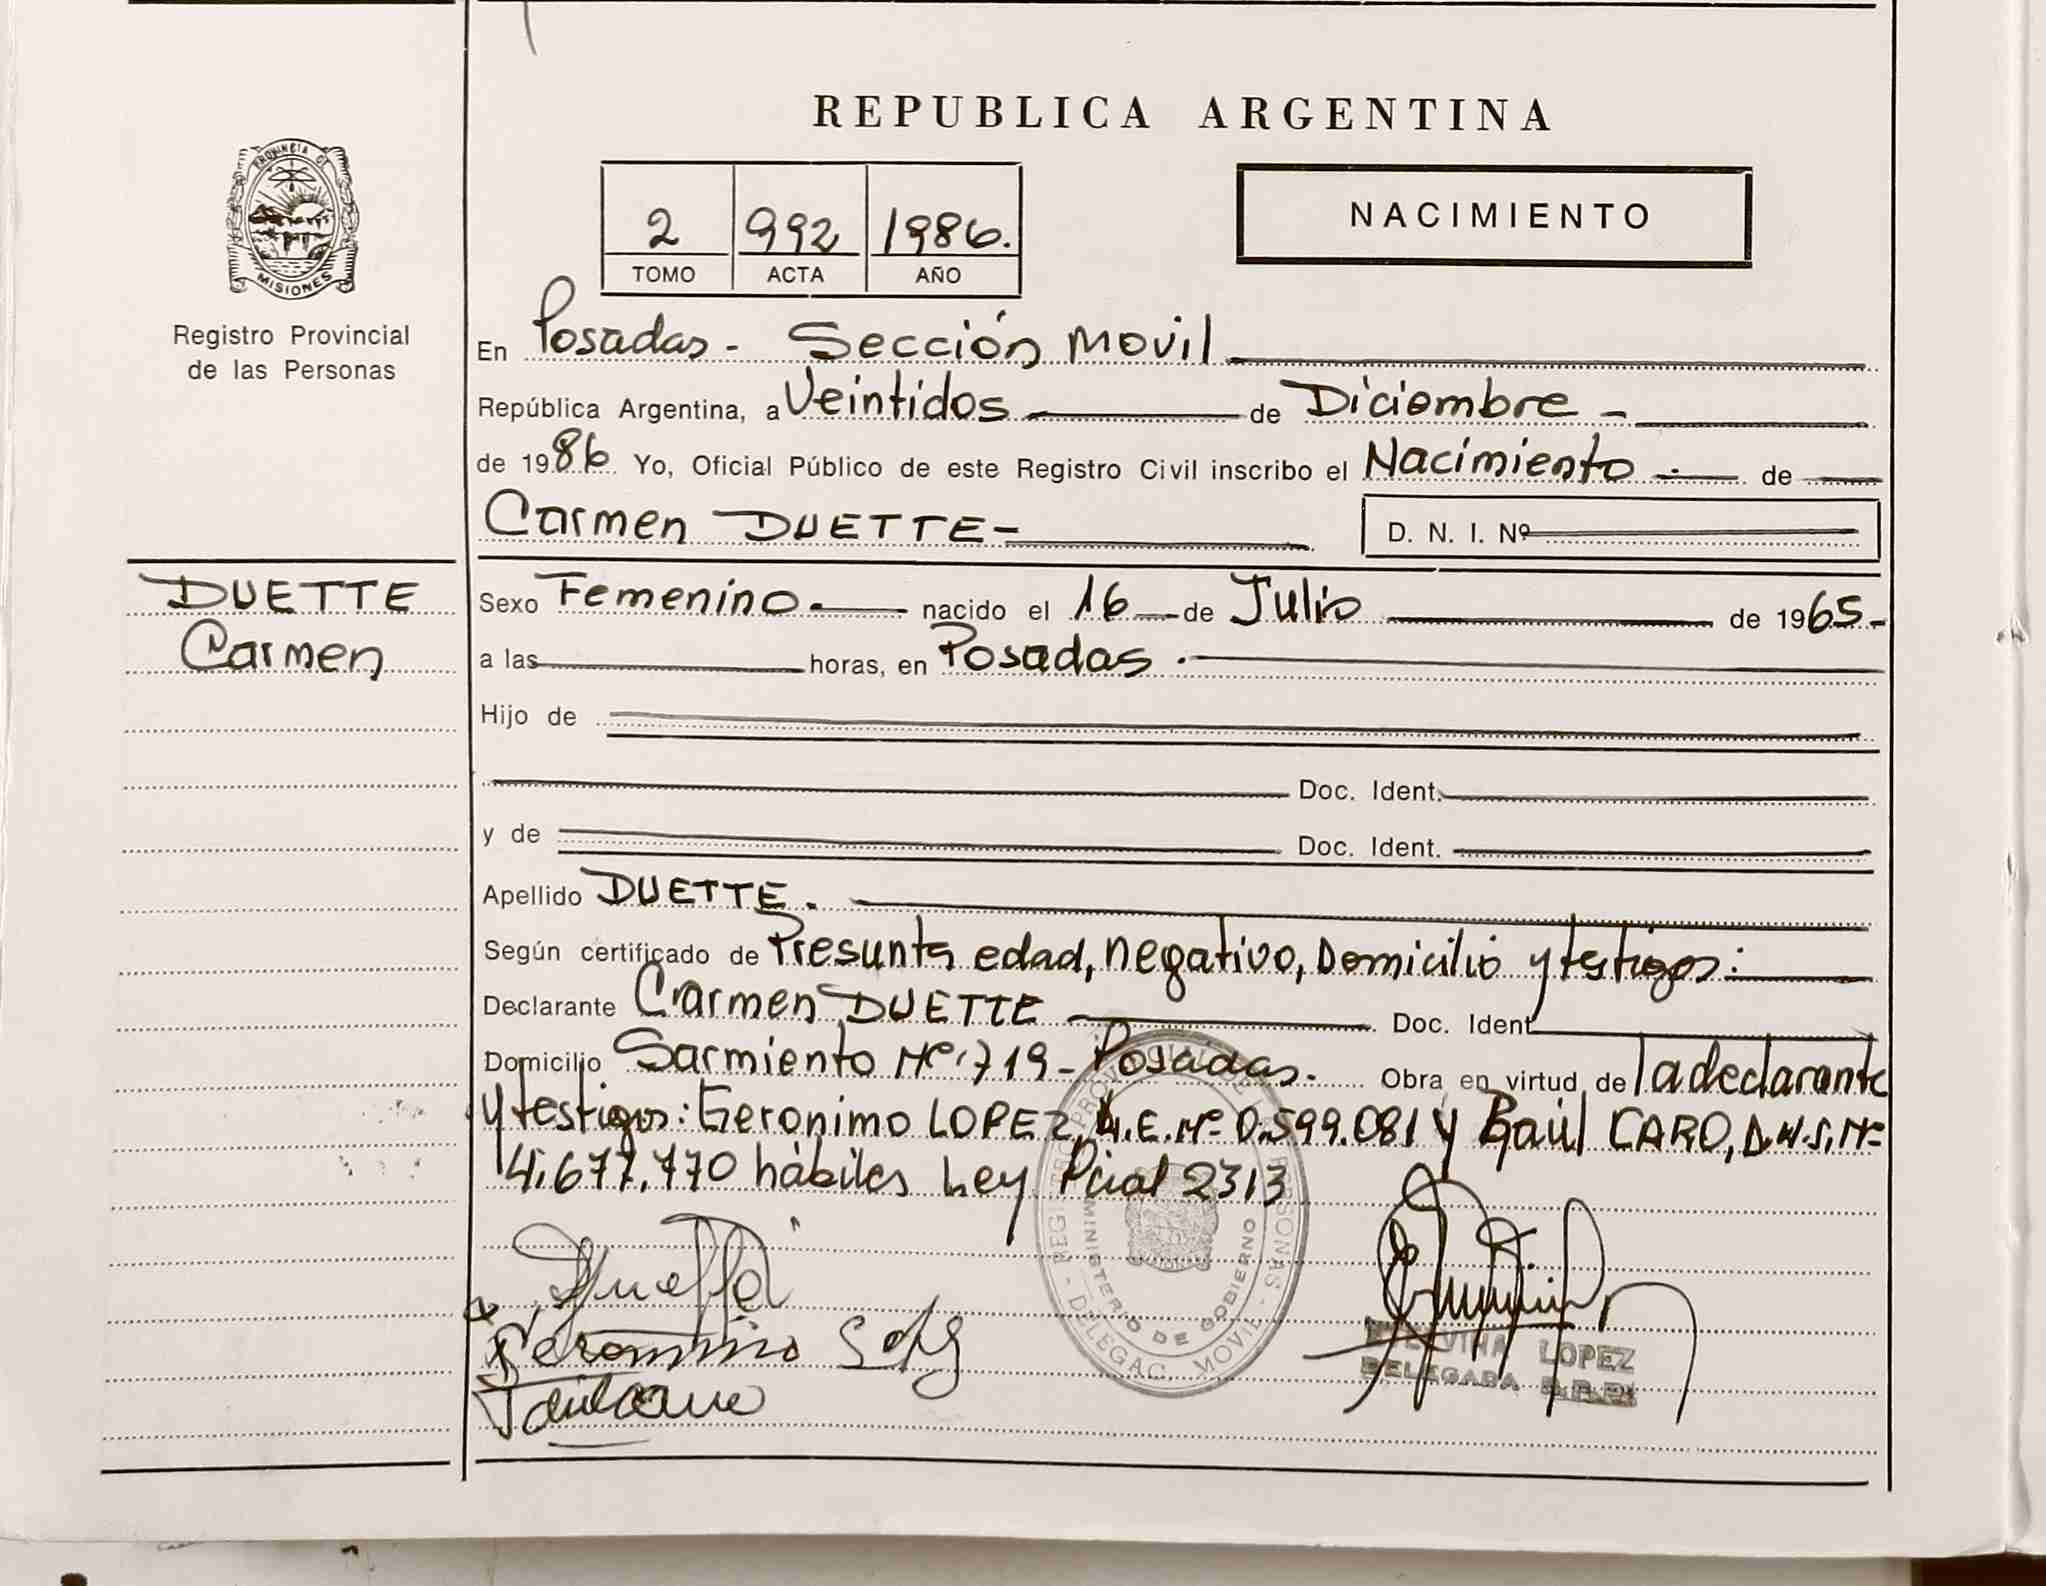 REPUBLICA ARGENTINA
PROVINCIA DE
MISIONES
Registro Provincial
de las Personas
2 992 1986.
TOMO ACTA AÑO
NACIMIENTO
En Posadas - Sección Movil
República Argentina, a Veintidos de Diciembre -
de 1986 Yo, Oficial Público de este Registro Civil inscribo el Nacimiento de
Carmen DUETTE - D. N. I. Nº
DUETTE
Carmen
Sexo Femenino nacido el 16 de Julio de 1965-
a las horas, en Posadas.
Hijo de
Doc. Ident.
y de Doc. Ident.
Apellido DUETTE.
Según certificado de Presunta edad, negativo, Domicilio y testigos:
Declarante Carmen DUETTE Doc. Ident
Domicilio Sarmiento Nº 719 - Posadas. Obra en virtud de la declarante
y testigos: Geronimo LOPEZ, L.E. Nº 0.599.081 y Raúl CARO, D.N.I. Nº
4.677.770 hábiles Ley Pcial 2313
MINISTERIO DE GOBIERNO
DELEGAC. MOVIL
Geronimo
LOPEZ
DELEGADA